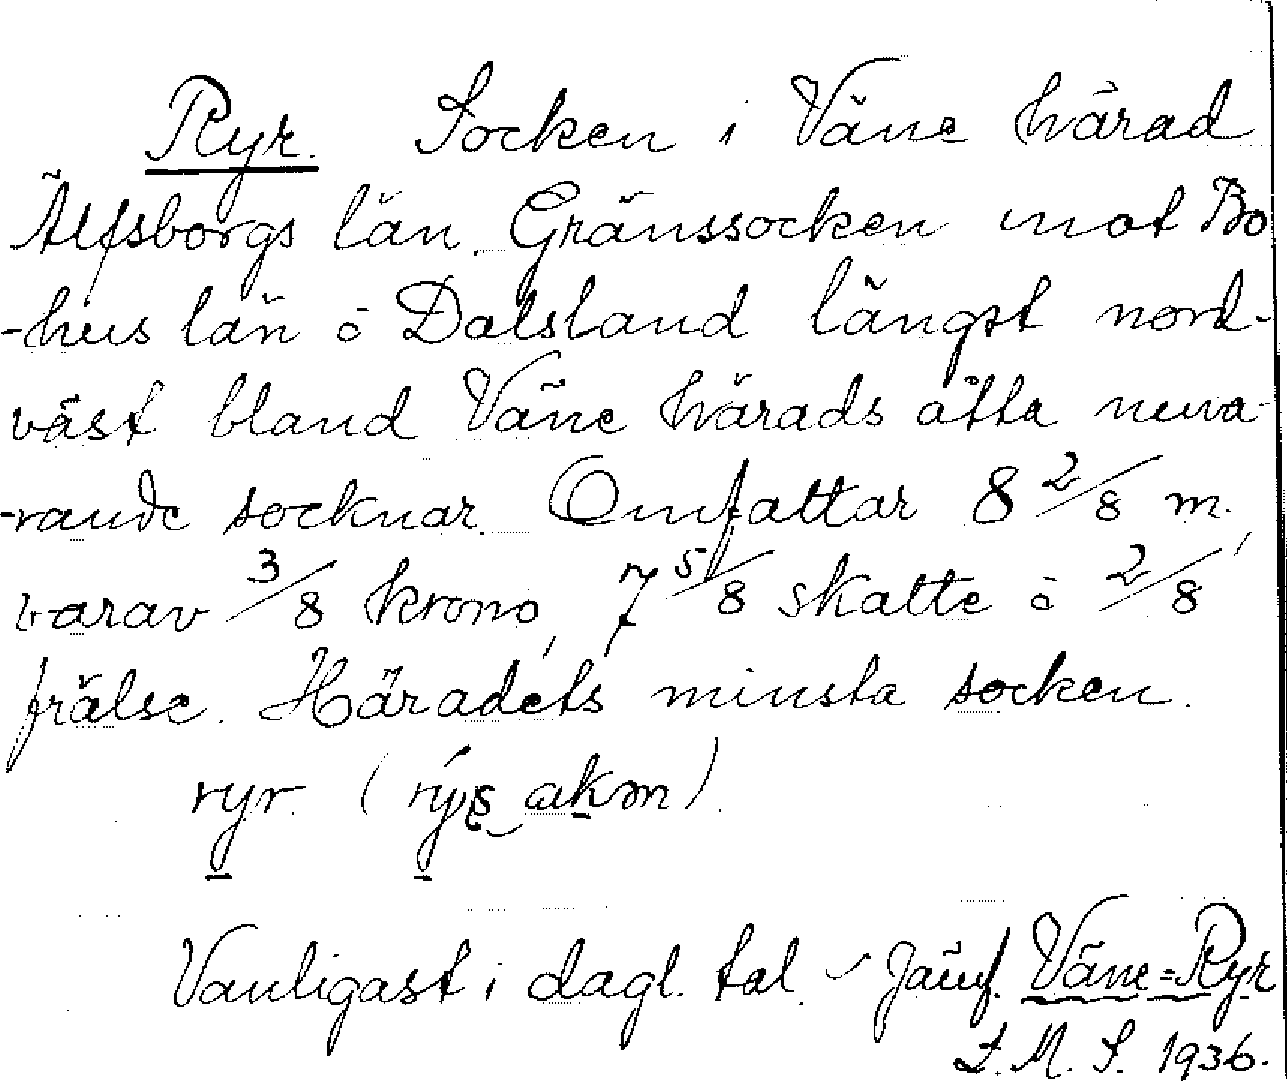 Ryr. Socken i Väne härad
Älfsborgs län. Gränssocken mot Bo
-hus län o Dalsland längst nord-
väst bland Väne härads åtta nuva-
-rande socknar. Omfattar 8 2/8 m.,
varav 3/8 krono, 7 5/8 skatte o 2/8
frälse. Häradets minsta socken.
ryr. (
Vanligast i dagl. tal. Jämf. Väne=Ryr
L. M. S. 1936.